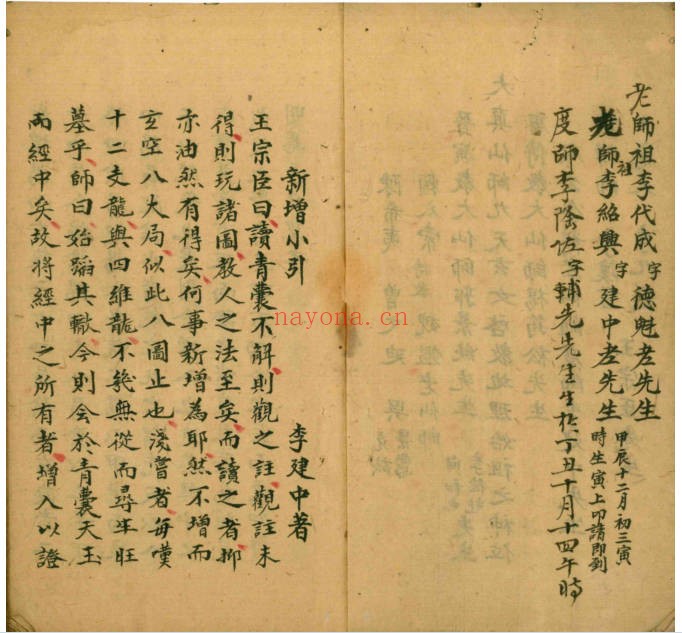 老師祖李代成字德魁老先生
老師祖李紹興字建中老先生
甲辰十二月初三寅
時生寅上叩請即到
度師李陰佐字輔先先生生於丁丑十月十四午時
新增小引 李建中著
王宗臣曰讀青囊不解則觀之註觀註未
得則玩諸圖教人之法至矣而讀之者抑
亦油然有得矣何事新增為耶然不增而
玄空八大局似此八圖止也淺嘗者每嘆
十二支龍與四維龍不幾無從而尋生旺
墓乎師曰始蹈其轍今則会於青囊天玉
兩經中矣故將經中之所有者增入以證
nayona.cn